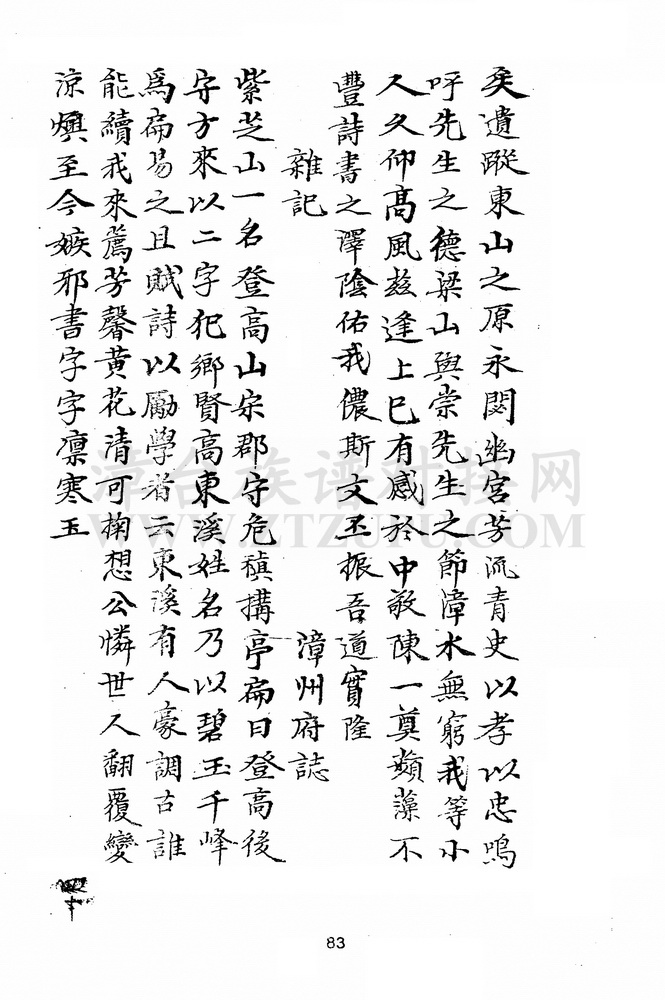 矣遺蹤東山之原永閟幽宮芳流青史以孝以忠嗚
呼先生之德梁山與崇先生之節漳水無窮我等小
人久仰高風玆逢上巳有感於中敬陳一奠蘋藻不
豐詩書之澤陰佑我儂斯文丕振吾道實隆
雜記 漳州府誌
紫芝山一名登高山宋郡守危稹搆亭扁曰登高後
守方來以二字犯鄉賢高東溪姓名乃以碧玉千峰
爲扁易之且賦詩以勵學者云東溪有人豪調古誰
能續我來薦芳馨黃花清可掬想公憐世人翻覆變
涼燠至今嫉邪書字字凜寒玉
四十
83
漳台族谱对接网
WWW.ZTZUPU.COM